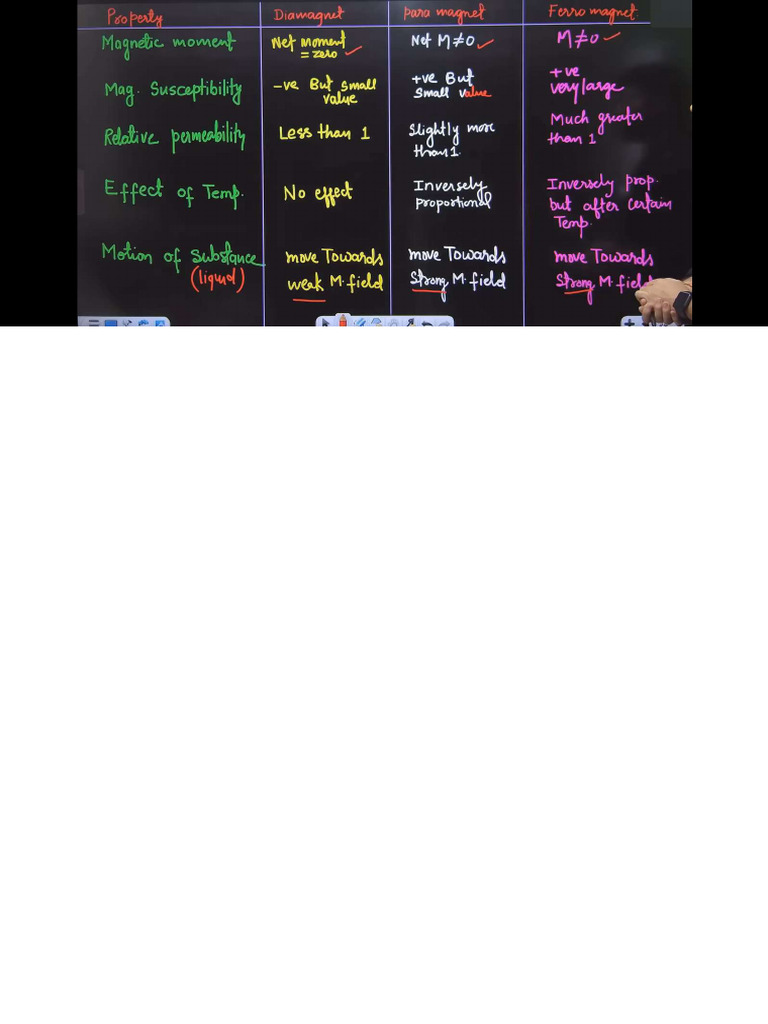 Property Diamagnet para magnet Ferro magnet.
Magnetic moment Net moment = zero Net M≠0 M≠0
Mag. Susceptibility -ve But small value +ve But small value +ve very large
Relative permeability Less than 1 Slightly more than 1. Much greater than 1
Effect of Temp. No effect Inversely proportional Inversely prop. but after certain Temp.
Motion of substance (liquid) move Towards weak M. field move Towards Strong M. field move Towards Strong M. field